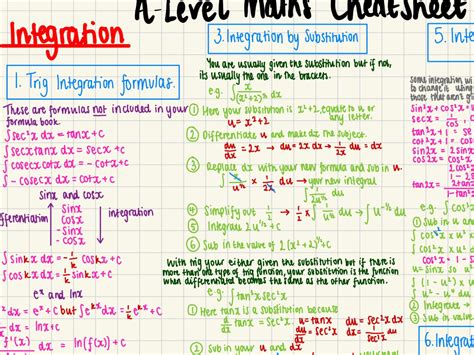 A-Level Maths Cheatsheet
Integration
1. Trig Integration formulas.
These are formulas not included in your
formula book.
∫sec²x dx = tanx + c
∫secxtanx dx = secx + c
∫cosecx cotx dx = - cotx + c
∫- cosecx dx = cotx + c
sinx and cosx
differentiation
Sinx
cosx
-Sinx
-cosx
integration
∫sinkx dx = -1/k coskx + c
∫coskx dx = 1/k sinkx + c
eˣ and lnx
dx = eˣ + c but ∫eᵏˣ dx = 1/k eᵏˣ + c
dx = lnx + c
f'(x) dx = ln(f(x)) + c
3. Integration by Substitution
You are usually given the substitution but if not,
its usually the one in the brackets.
e.g. ∫ x/(x²+2)½ dx
① Here your subsitution is x²+2, equate to u or
any letter.
u = x²+2
② Differentiate u and make dx the subject.
du/dx = 2x → du = 2x dx → 1/2x du = dx
③ Replace dx with your new formula and sub in u.
∫ x/u^½ × 1/2x du → your new integral
④ Simplify out
∫ 1/2u^½ du → ∫u^-½ du
⑤ Integrate 2u^½ + c
⑥ Sub in the value of 2(x²+2)½ + c
With trig your either given the substitution but if there is
more than one type of trig function, your substitution is the function
when differentiated becomes the same as the other function.
e.g. ∫tan²x sec²x
① Here tanx is a substitution because
d/dx tanx = sec²x
u = tanx
du/dx = sec²x
du = sec²x dx
1/sec²x du = dx
② Sub in your u and dx
5. Inte
Some integration wi
to change it using
those that aren't giv
secx = 1/cosx
tan²x + 1 = se
cot²x + 1 = cos
sin2x = 2sin
cos2x = cos²
tan2x =
e.g. ∫cos²x
① Sub in u and
∫cos²x x u
u = sinx so
6. Integ